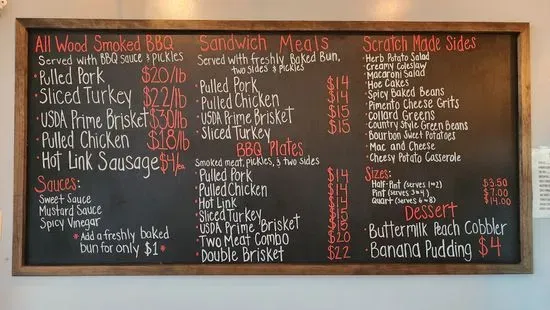 All Wood Smoked BBQ
Served with BBQ sauce & pickles
· Pulled Pork $20/lb
· Sliced Turkey $22/lb
· USDA Prime Brisket $30/lb
· Pulled Chicken $18/lb
· Hot Link Sausage $4/ea
Sauces:
Sweet Sauce
Mustard Sauce
Spicy Vinegar
* Add a freshly baked
bun for only $1 *
Sandwich Meals
Served with freshly Baked Bun,
two sides & pickles
· Pulled Pork $14
· Pulled Chicken $14
· USDA Prime Brisket $15
· Sliced Turkey $15
BBQ Plates
Smoked meat, pickles, & two sides
· Pulled Pork $14
· Pulled Chicken $14
· Hot Link $14
· Sliced Turkey $15
· USDA Prime Brisket $15
· Two Meat Combo $20
· Double Brisket $22
Scratch Made Sides
· Herb Potato Salad
· Creamy Coleslaw
· Macaroni Salad
· Hoe Cakes
· Spicy Baked Beans
· Pimento Cheese Grits
· Collard Greens
· Country Style Green Beans
· Bourbon Sweet Potatoes
· Mac and Cheese
· Cheesy Potato Casserole
Sizes:
Half-Pint (serves 1-2) $3.50
Pint (serves 3-4) $7.00
Quart (serves 6-8) $14.00
Dessert
· Buttermilk Peach Cobbler
· Banana Pudding $4